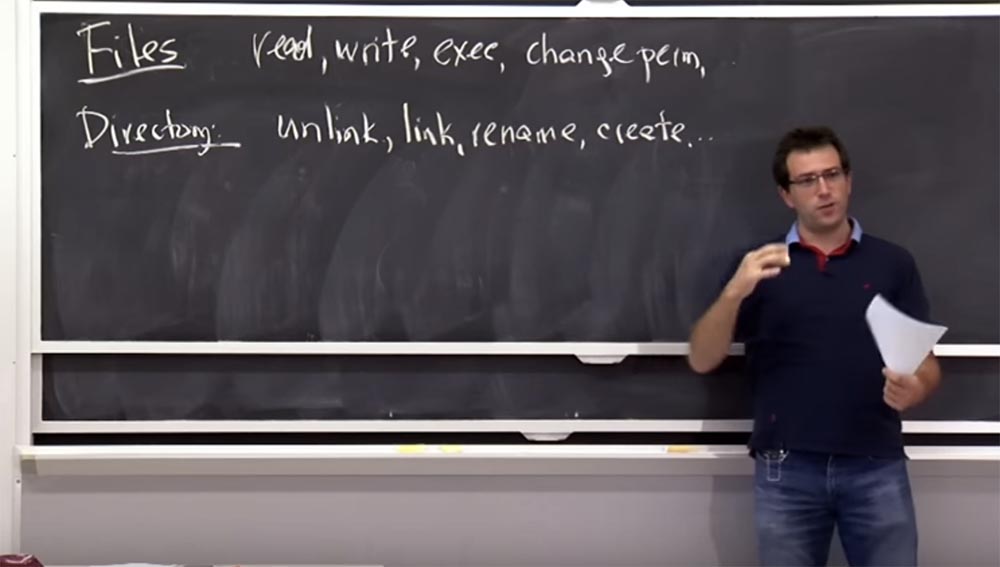 Files read, write, exec, change perm,
Directory: unlink, link, rename, create...